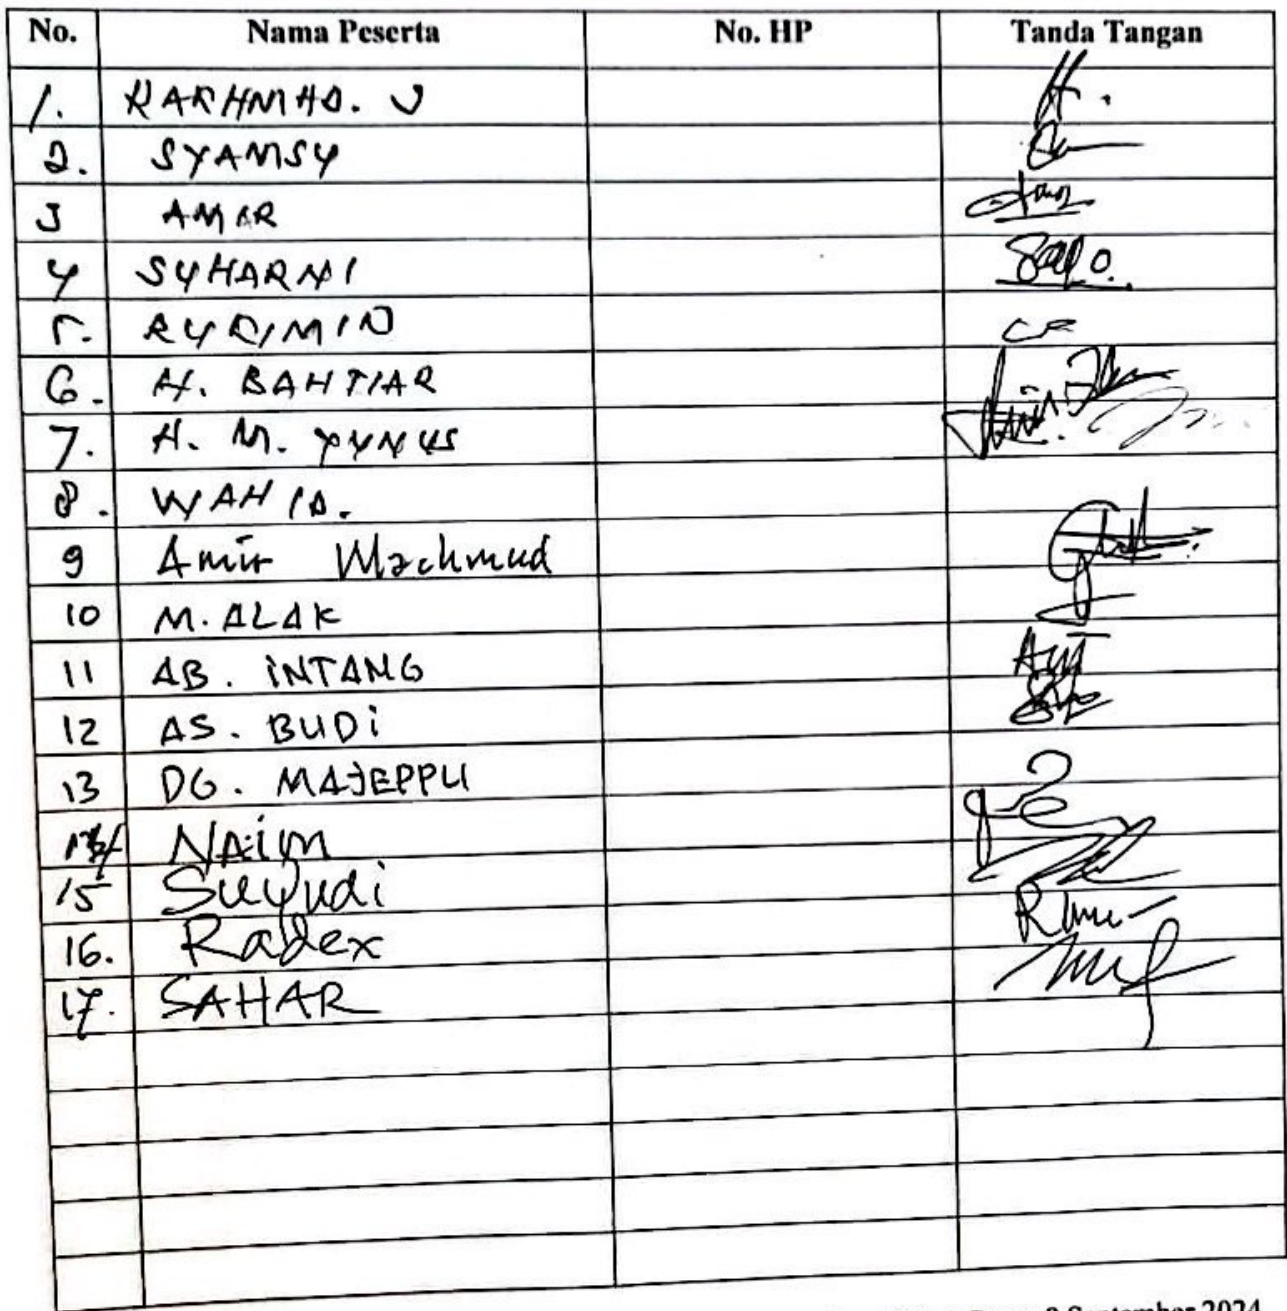 No. Nama Peserta No. HP Tanda Tangan
1. RAKHMAD. J
2. SYAMSY
3 AMIR
4 SUHARNI
5. RUKIMIN
6. H. BAHTIAR
7. H. M. YUNUS
8. WAHID.
9 Amir Machmud
10 M. ALAK
11 AB. INTANG
12 AS. BUDI
13 DG. MAJEPPU
14 NAIM
15 Suyudi
16. Radex
17. SAHAR
September 2024